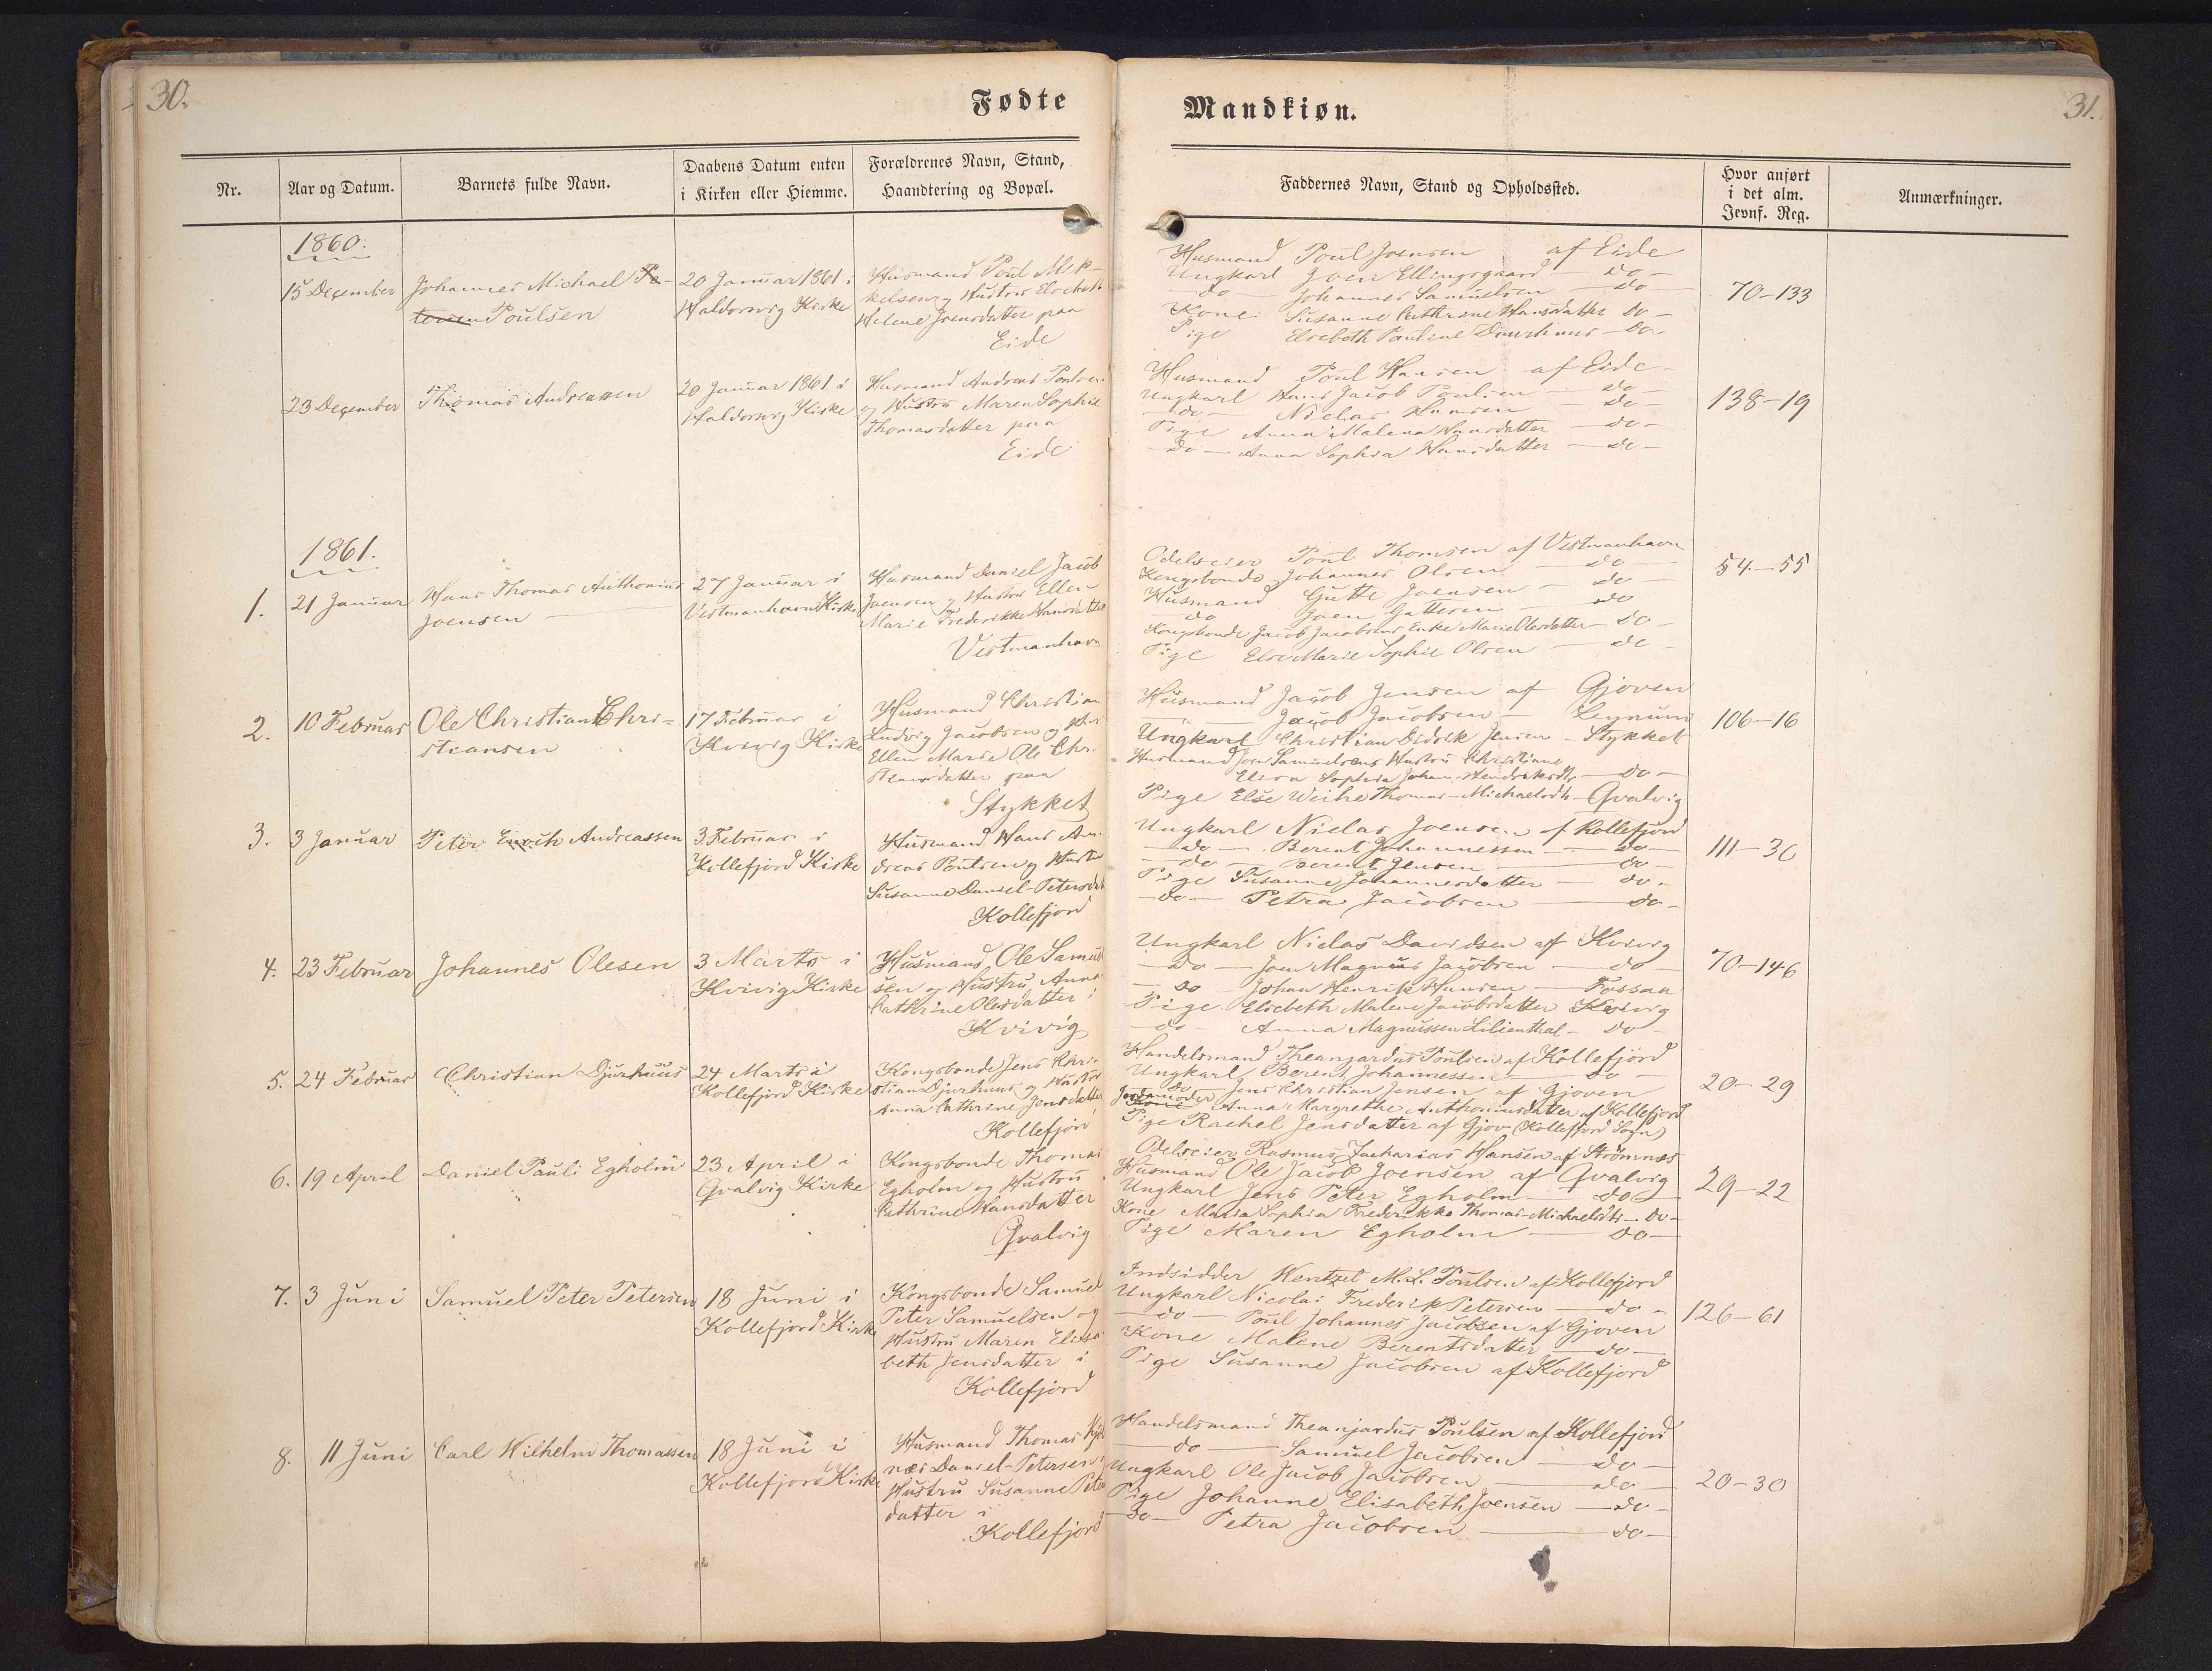 30.
Fødte
Nr.
Aar og Datum.
Barnets fulde Navn.
Daabens Datum enten
i Kirken eller Hiemme.
Forældrenes Navn, Stand,
Haandtering og Bopæl.
1860.
15 December
Johannes Michael Pe-
tersen Poulsen
20 Januar 1861 i
Haldorsvig Kirke
Husmand Poul Mik-
kelsen og Hustru Elsebeth
Helene Joensdatter paa
Eide
23 December
Thomas Andreassen
20 Januar 1861 i
Haldorsvig Kirke
Husmand Andreas Poulsen
og Hustru Maren Sophie
Thomasdatter paa
Eide
1861.
1.
21 Januar
Hans Thomas Anthonius
Joensen
27 Januar i
Vestmanhavn Kirke
Husmand Daniel Jacob
Joensen og Hustru Ellen
Marie Frederikke Hansdatter
Vestmanhavn
2.
10 Februar
Ole Christian Chri-
stiansen
17 Februar i
Kvivig Kirke
Husmand Christian
Ludvig Jacobsen og
Ellen Marie Ole Chr.
stiansdatter paa
Stykket
3.
3 Januar
Peter Enoch Andreassen
3 Februar i
Kollefjord Kirke
Husmand Hans An-
dreas Poulsen og Hustru
Susanne Daniel-Petersdat
Kollefjord
4.
23 Februar
Johannes Olesen
3 Marts i
Kvivig Kirke
Husmand Ole Samuel
sen og Hustru Anna
Cathrine Olesdatter i
Kvivig
5.
24 Februar
Christian Djurhuus
24 Marts i
Kollefjord Kirke
Kongsbonde Jens Chri-
stian Djurhuus og Hustru
Anna Cathrine Jensdatter
Kollefjord
6.
19 April
Daniel Pauli Egholm
23 April i
Qvalvig Kirke
Kongsbonde Thomas
Egholm og Hustru
Cathrine Hansdatter
Qvalvig
7.
3 Juni
Samuel Peter Petersen
18 Juni i
Kollefjord Kirke
Kongsbonde Samuel
Peter Samuelsen og
Hustru Maren Elisa
beth Jensdatter i
Kollefjord
8.
11 Juni
Carl Wilhelm Thomassen
18 Juni i
Kollefjord Kirke
Husmand Thomas
næs Daniel-Petersen
Hustru Susanne Peters
datter i
Kollefjord
Mandkiøn.
31.
Faddernes Navn, Stand og Opholdssted.
Hvor anført
i det alm.
Jevnf. Reg.
Anmærkninger.
Husmand Poul Joensen af Eide
Ungkarl Joen Ellingsgaard — do —
— do — Johannes Samuelsen — do
Kone Susanne Cathrine Hansdatter do —
Pige Elsebeth Pauline Djurhuus — do
70-133
Husmand Poul Hansen af Eide
Ungkarl Hans Jacob Poulsen — do —
— do — Niclas Hansen — do —
Pige Anna Malena Hansdatter — do —
— do — Anna Sophia Hansdatter — do —
138-19
Odelseier Poul Thomsen af Vestmanhavn
Kongsbonde Johannes Olsen — do
Husmand Gutte Joensen — do
do Joen Guttesen — do
Kongsbonde Jacob Jacobsens Enke Marie Olesdatter — do —
Pige Else Marie Sophie Olsen — do —
54-55
Husmand Jacob Jensen af Gjoven
— Jacob Jacobsen — Leynum
Ungkarl Christian Didrik Jensen — Stykket
Husmand Joen Samuelsens Hustru Christiane
Elisa Sophia Johan-Hendriksdtr — do —
Pige Else Weihe Thomas-Michaelsdtr — Qvalvig
106-16
Ungkarl Niclas Joensen af Kollefjord
— do — Berent Johannessen — do —
— do — Berent Jensen — do
Pige Susanne Johannesdatter — do —
— do — Petra Jacobsen — do —
111-30
Ungkarl Niclas Davidsen af Kvivig
— do — Joen Magnus Jacobsen — do
— do — Johan Henrik Hansen — Fossaa
Pige Elsebeth Malene Jacobsdatter Kvivig
— do — Anna Magnussen Lilienthal — do —
70-146
Handelsmand Theangardus Poulsen af Kollefjord
Ungkarl Berent Johannessen — do —
do Jens Christian Jensen af Gjoven
Jordemoder
Kone Anna Margrethe Anthoniusdatter af Kollefjord
Pige Rachel Jensdatter af Gjov (Kollefjord Sogn)
20-29
Odelseier Rasmus Zacharias Hansen af Strømnæs
Husmand Ole Jacob Joensen af Qvalvig
Ungkarl Jens Peter Egholm — do —
Kone Maria Sophia Frederikke Thomas-Michaelsdtr — do —
Pige Maren Egholm — do —
29-22
Indsidder Wentzel M. L. Poulsen af Kollefjord
Ungkarl Nicolai Frederik Petersen — do —
— do — Poul Johannes Jacobsen af Gjoven
Kone Malene Berentsdatter — do —
Pige Susanne Jacobsen af Kollefjord
126-61
Handelsmand Theanjardus Poulsen af Kollefjord
— do — Samuel Jacobsen — do —
Ungkarl Ole Jacob Jacobsen — do —
Pige Johanne Elisabeth Joensen — do —
— do — Petra Jacobsen — do —
20-30